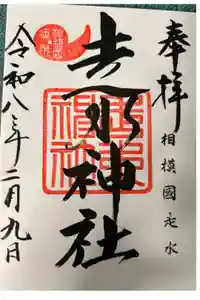 奉拝
相模國走水
走水神社
令和八年二月九日